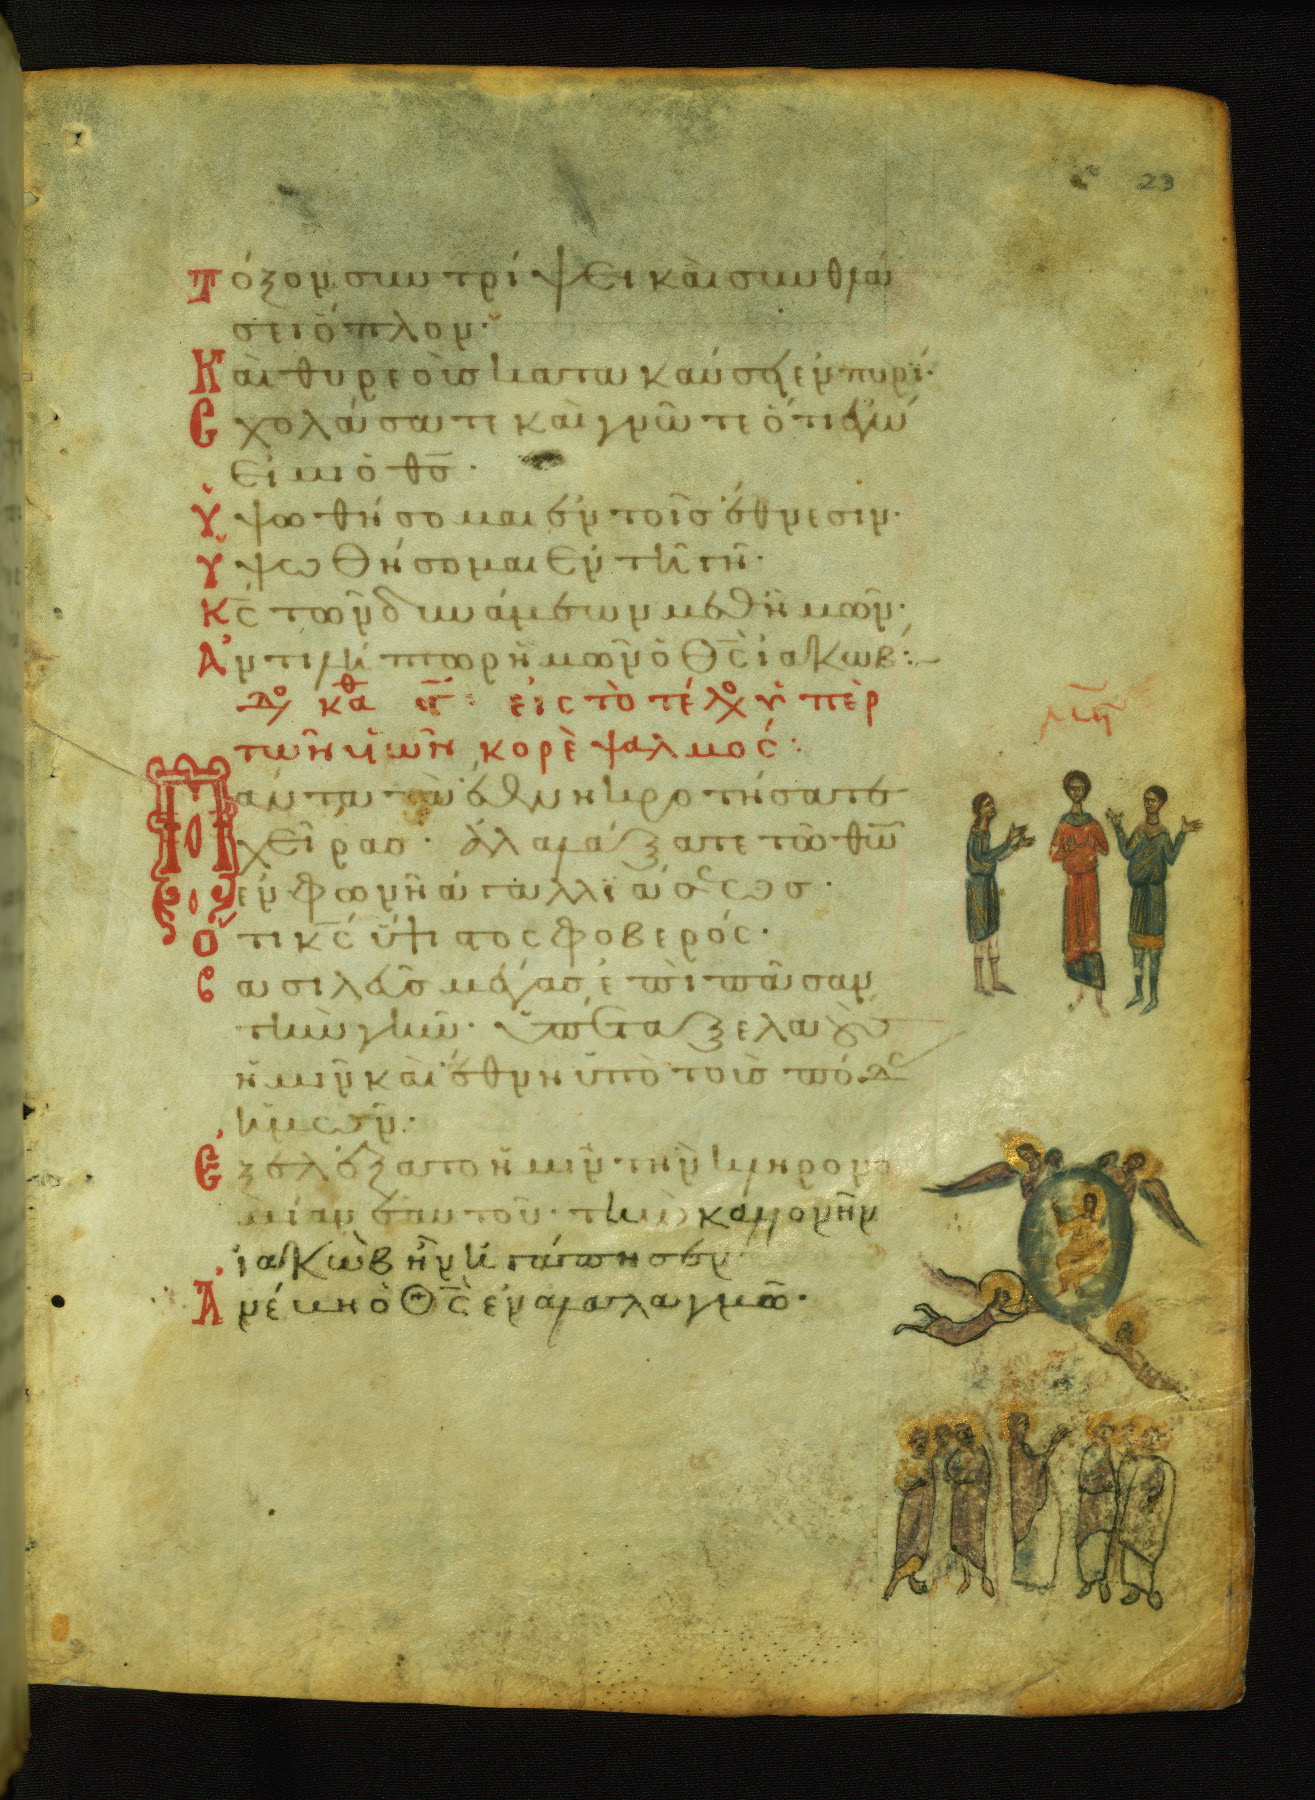 23
Τόξον συντρίψει καὶ συνθλά
σει ὅπλον·
Καὶ θυρεοὺς κατακαύσει ἐν πυρί·
Σχολάσατε καὶ γνῶτε ὅτι ἐγώ
εἰμι ὁ θ̅ς̅·
Ὑψωθήσομαι ἐν τοῖς ἔθνεσιν·
Ὑψωθήσομαι ἐν τῇ γῇ·
Κ̅ς̅ τῶν δυνάμεων μεθ ἡμῶν·
Ἀντιλήπτωρ ἡμῶν ὁ Θ̅ς̅ ἰακώβ:
εἰς τὸ τέλος ὑπὲρ
τῶν υἱῶν κορὲ ψαλμός:
Πάντα τὰ ἔθνη κροτήσατε
χεῖρας· ἀλαλάξατε τῷ θ̅ω̅
ἐν φωνῇ ἀγαλλιάσεως·
Ὅτι κ̅ς̅ ὕψιστος φοβερός·
βασιλεὺς μέγας ἐπὶ πᾶσαν
τὴν γῆν· ὑπέταξε λαοὺς
ἡμῖν καὶ ἔθνη ὑπὸ τοὺς πόδας
ἡμῶν·
Ἐξελέξατο ἡμῖν τὴν κληρονο
μίαν ἑαυτοῦ· τὴν καλλονὴν
ἰακὼβ ἣν ἠγάπησεν·
Ἀνέβη ὁ Θ̅ς̅ ἐν ἀλαλαγμῷ·